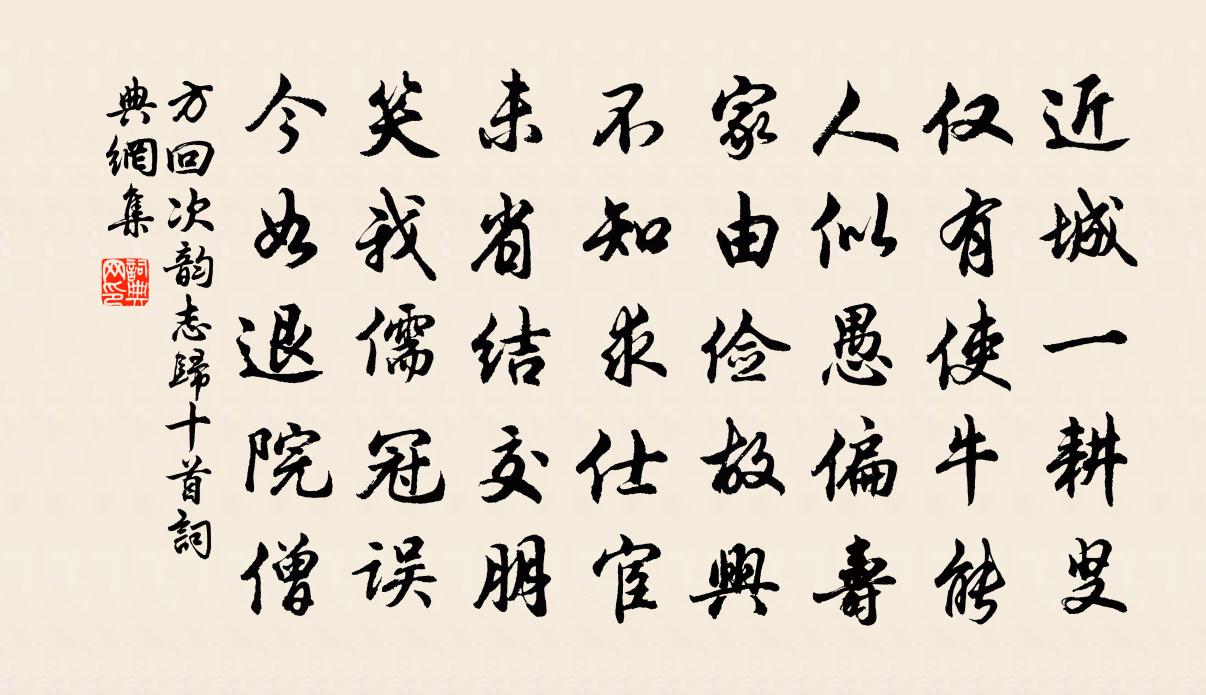 近城一耕叟
仅有使牛能
人似愚偏壽
家由俭故興
不知求仕宦
未省结交朋
笑我儒冠误
今如退院僧
方回次韵志歸十首詞
典網集
詞典
网印